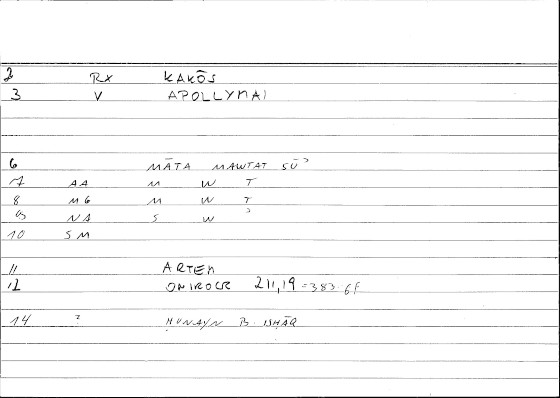 2 RX KAKŌS
3 V APOLLYMAI
6 MĀTA MAWTAT SŪʾ
7 AA M W T
8 MG M W T
9 NA S W ʾ
10 SM
11 ARTEM
12 ONIROCR 211,19 = 383.6F
14 ? ḤUNAYN B. ISḤĀQ